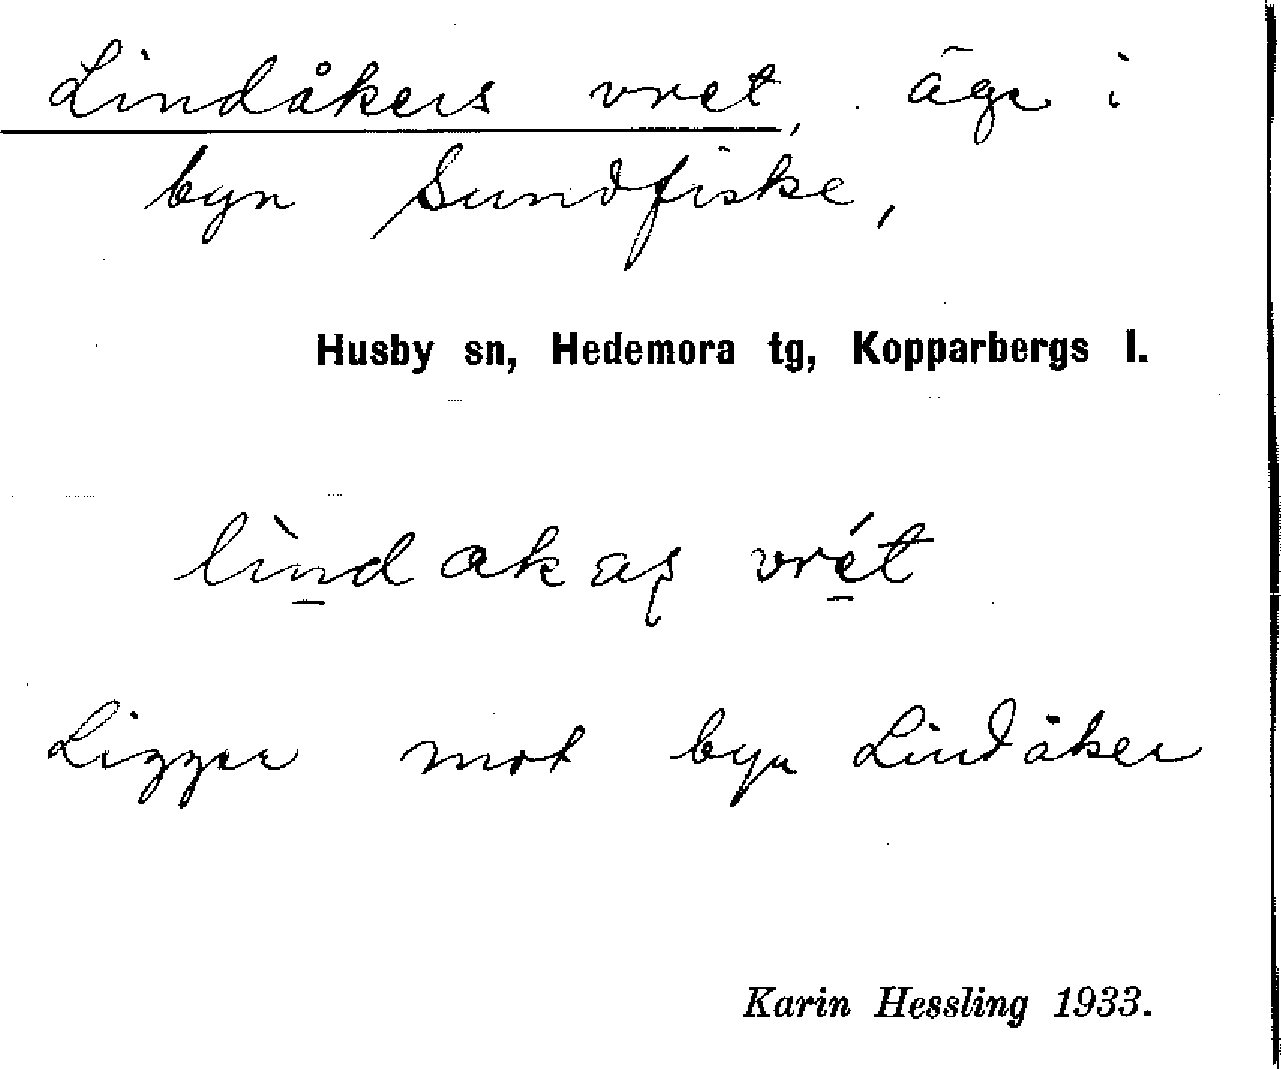 Lindåkers vret, äga i
byn Sundfiske,
Husby sn, Hedemora tg, Kopparbergs l.
lìndakas vrét
Ligger mot byn Lindåker
Karin Hessling 1933.